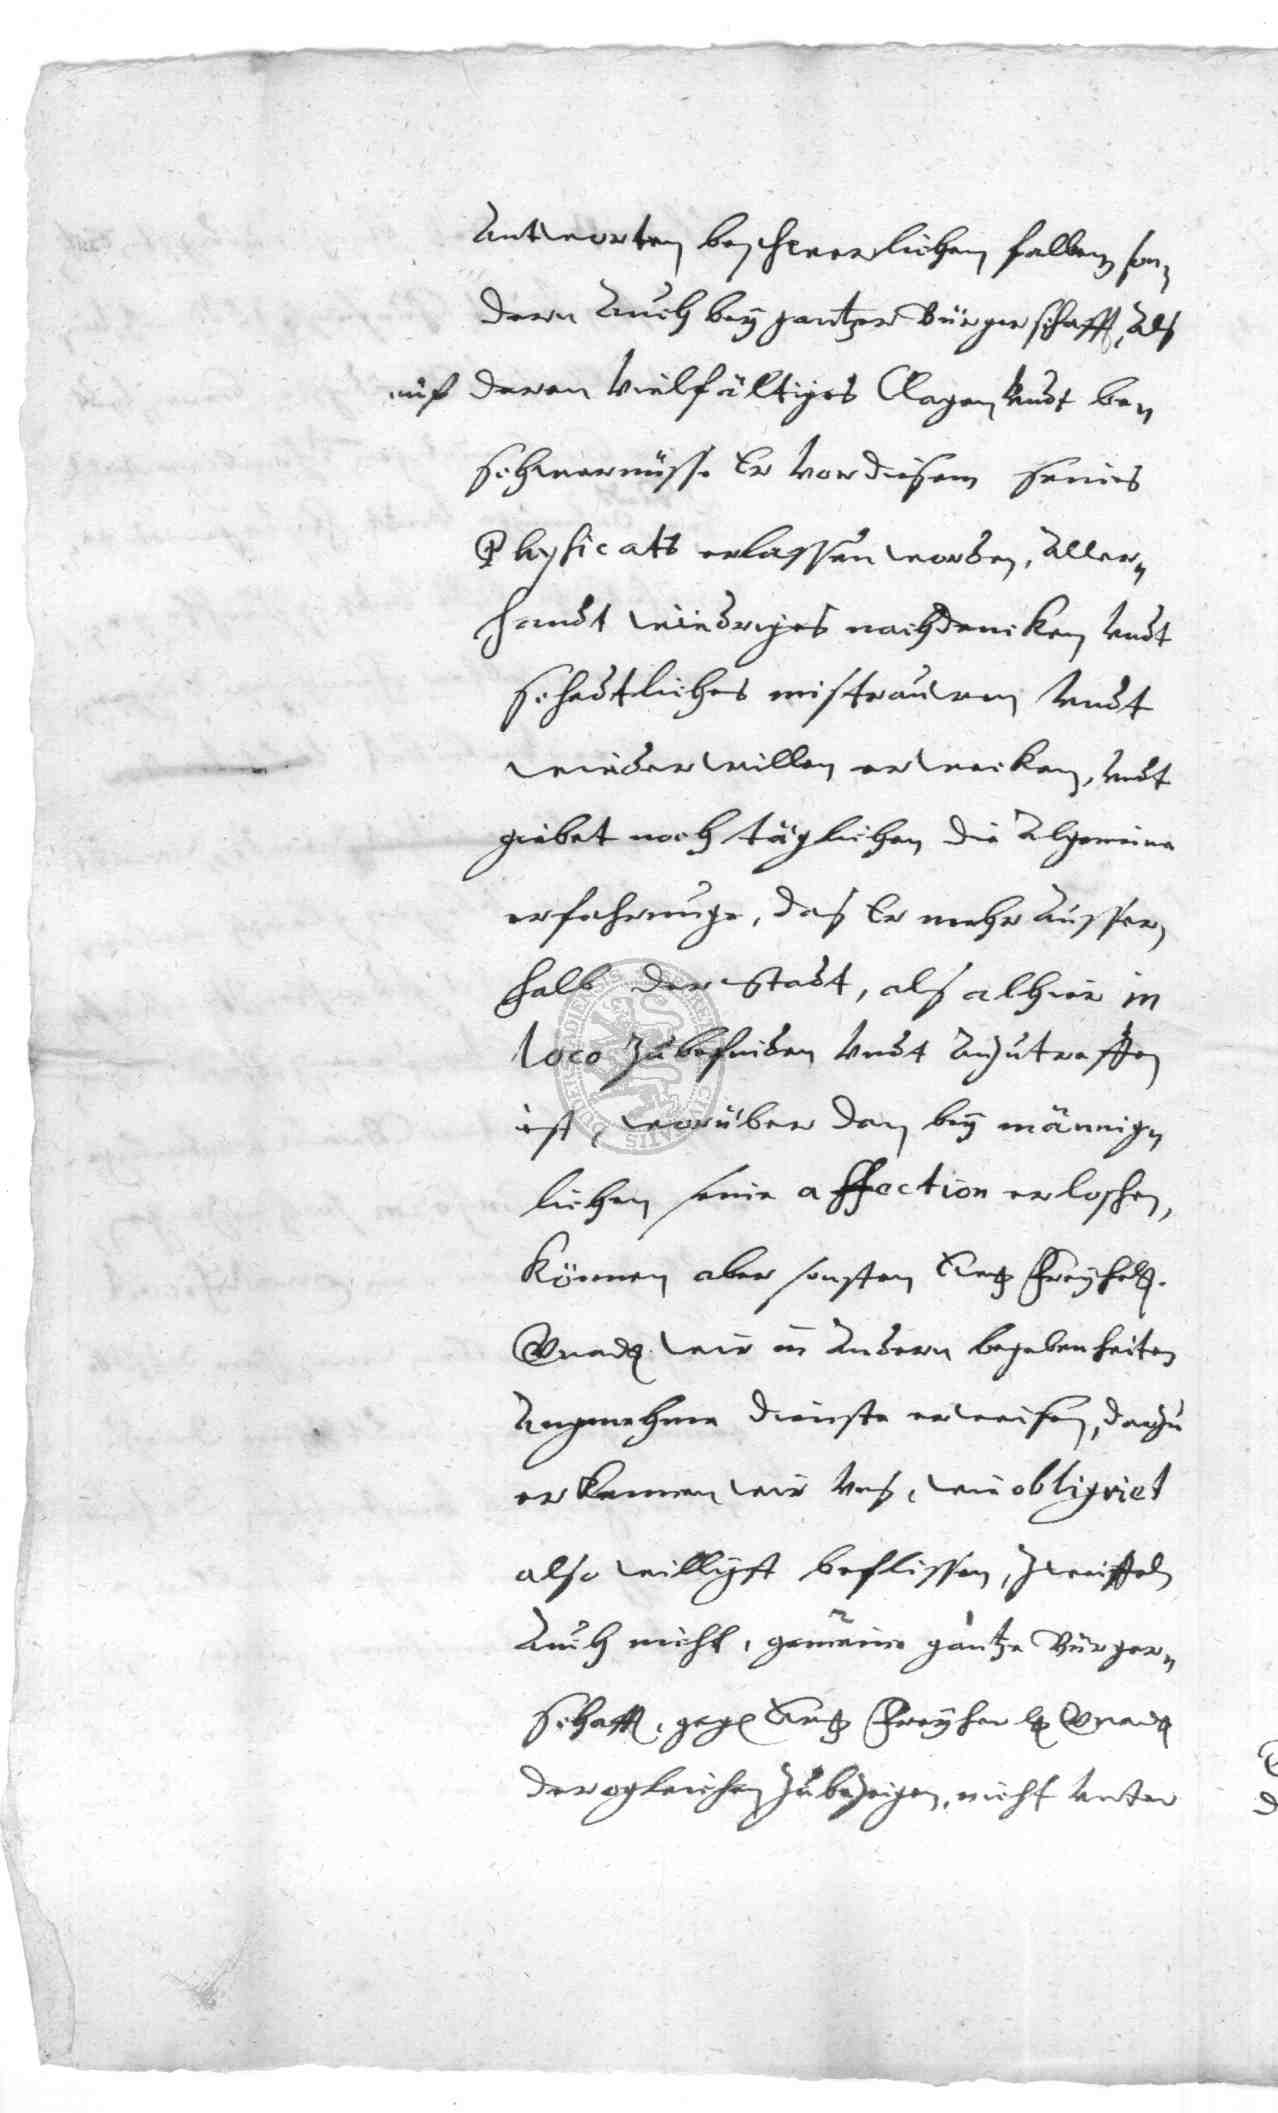 Antworten beschwerlichen fallen, son,
dern Auch beÿ gantzer Bürgerschafft, Als
auf deren vielfältiges Clagen vndt be,
schwernüsse Er vor diesem seines
Physicats erlassen worden, Aller,
handt wiedriges nachdencken vndt
schedtliches mistrauen vndt
wiederwillen erwecken, vndt
giebet noch täglichen die Algemeine
erfahrunge, das Er mehr Ausser,
halb der Stadt, als alhier in
loco Zubefinden vndt Anzutreffen
ist, worüber dan beÿ männig,
lichen seine affection erloschen,
Können aber sonsten Freÿherl.
Gnad. wir in Andern begebenheiten
Angenehme dienste erweisen, darzu
erkennen wir vns, wie obligiret
also willigst beflissen, Zweiffeln
Auch nicht, gemeine gantze Bürger,
schafft, gegen Freÿherl. Gnad.
dergleichen Zubezeigen, nicht vnter
SIGILLUM CIVITATIS DUDERSTADIENSIS